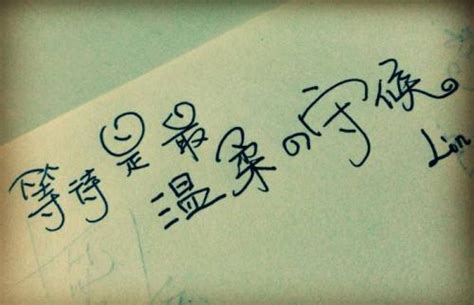 等待是最
温柔の守候。
Lin